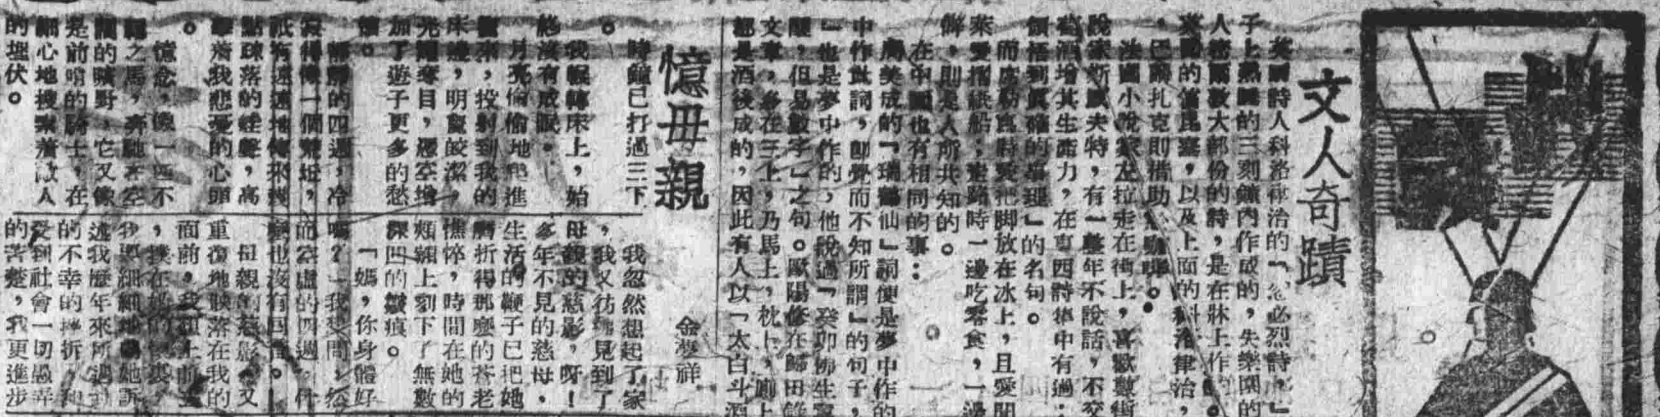 文人奇蹟
英國詩人科洛律治的「忽必烈詩」
子上熱鬧的三刻鐘內作成的,失樂園的
人密爾敦大部份的詩,是在牀上作的。
英國的
,以及上面的科洛律治,
,巴爾扎克則借助
法國小說家左拉走在街上,喜歡數街
說家斯威夫特,有一整年不說話,不交
萄酒增其生產力,在東西詩集中有過:
領悟到真確的事理」的名句。
而席勒寫時愛把脚放在冰上,且愛聞
萊愛摺紙船;走路時一邊吃零食,一邊
解,則是人所共知的。
在中國也有相同的事:
周美成的「瑞鶴仙」詞便是夢中作的
中作此詞,即覺而不知所謂」的句子,
」也是夢中作的,他說過「癸卯
醒,但易數字」之句。歐陽修在歸田錄
文章,多在三上,乃馬上,枕上,廁上
都是酒後成的,因此有人以「太白斗酒
憶毋親
金夢祥
時鐘已打過三下
。
我輾轉床上,始
終沒有成眠。
月亮偷偷地爬進
窗來,投射到我的
床邊,明麗皎潔,
光耀奪目,憑空增
加了遊子更多的愁
懷。
靜靜的四週,冷
寂得像一個荒坵,
祇有遠遠地傳來幾
點疎落的蛙聲,高
我悲憂的心頭
。
憶念,像一匹不
羈之馬,奔馳在空
闊的曠野,它又像
是前哨的騎士,在
細心地搜索蕭敵人
的埋伏。
我忽然想起了家
,我又彷彿見到了
母親的慈影,呀!
多年不見的慈母,
生活的鞭子已把她
磨折得那麼的蒼老
憔悴,時間在她的
頰額上刻下了無數
深凹的皺痕。
「媽,你身體好
嗎?」我要問,然
而空虛的四週,什
麼也沒有回音。
母親的慈影,又
重復地映落在我的
面前,我
,撲在她的懷裏,
我要細細地向她訴
述我歷年來所遇到
的不幸的挫折,和
受到社會一切愚弄
的苦楚,我更進步